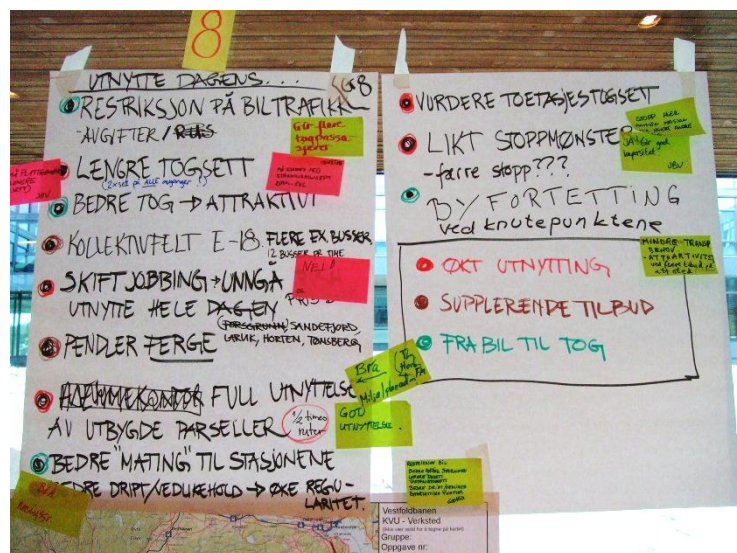 8
UTNYTTE DAGENS...
G8
RESTRIKSJON PÅ BILTRAFIKK
-AVGIFTER/
Gir flere
togpassa-
sjerer
LENGRE TOGSETT
(2xsett på ALLE avganger!)
JBV
BEDRE TOG → ATTRAKTIVT
KOLLEKTIVFELT E-18. FLERE EX.BUSSER
12 BUSSER PR TIME
NEI!
SKIFTJOBBING → UNNGÅ
UTNYTTE HELE DAGEN
(PORSGRUNN, SANDEFJORD,
LARVIK, HORTEN, TØNSBERG
PENDLER FERGE
HJEMMEKONTOR FULL UTNYTTELSE
AV UTBYGDE PARSELLER
1/2 times
ruter
Bra
GOD
UTNYTTELSE.
BEDRE "MATING" TIL STASJONENE
BEDRE DRIFT/VEDLIKEHOLD → ØKE REGU-
LARITET.
VURDERE TOETASJESTOGSETT
LIKT STOPPMØNSTER
-færre stopp???
JA! Gir god
kapasitet!
JBV
BYFORTETTING
ved knutepunktene
MINDRE TRANSP.
BEHOV
-ATTRAKTIVITET
ØKT UTNYTTING
SUPPLERENDE TILBUD
FRA BIL TIL TOG
Vestfoldbanen
KVU - Verksted
Gruppe:
Oppgave nr: